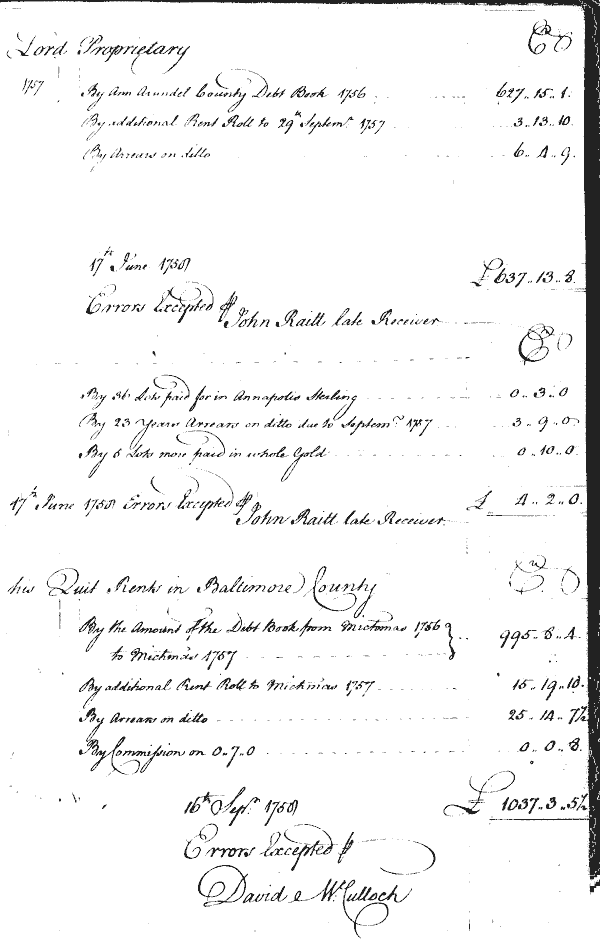 Lord Proprietary Cr
1757 By Ann Arundel County Debt Book 1756 627..15..1.
By additional Rent Roll to 29th Septemr. 1757 3..13..10.
By Arrears on ditto 6..4..9.
17th June 1758 £637..13..8.
Errors Excepted
John Raitt late Receiver
Cr
By 36 Lots paid for in Annapolis Sterling 0..3..0
By 23 Years Arrears on ditto due to Septemr. 1757 3..9..0
By 5 Lots more paid in whole Gold 0..10..0.
17th June 1758 Errors Excepted £ 4..2..0.
John Raitt late Receiver.
his Quit Rents in Baltimore County Cr
By the Amount of the Debt Book from Michmas 1756
to Michmas 1757 995..8..4.
By additional Rent Roll to Michmas 1757 15..19..10.
By Arrears on ditto 25..14..7½
By Commission on 0..7..0 0..0..8.
16th Sepr. 1758 £ 1037..3..5½
Errors Excepted
David McCulloch